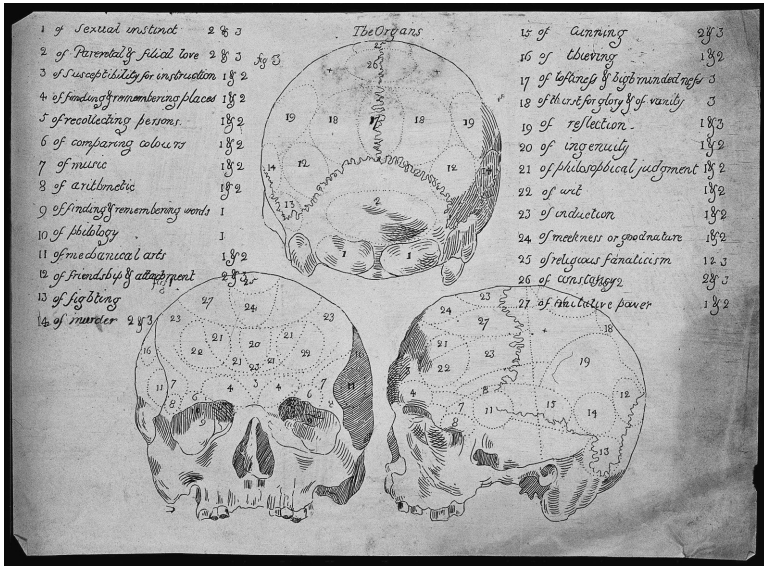 The Organs
1 of Sexual instinct 2 & 3
2 of Parental & filial love 2 & 3
3 of Susceptibility for instruction 1 & 2
4 of finding & remembering places 1 & 2
5 of recollecting persons. 1 & 2
6 of comparing colours 1 & 2
7 of music 1 & 2
8 of arithmetic 1 & 2
9 of finding & remembering words 1
10 of philology 1
11 of mechanical arts 1 & 2
12 of friendship & attachment 2 & 3
13 of fighting
14 of murder 2 & 3
15 of Cunning 2 & 3
16 of thieving 1 & 2
17 of loftiness & highmindedness 3
18 of thirst for glory & of vanity 3
19 of reflection 1 & 3
20 of ingenuity 1 & 2
21 of philosophical judgment 1 & 2
22 of wit 1 & 2
23 of induction 1 & 2
24 of meekness or good nature 1 & 2
25 of religious fanaticism 1 2 3
26 of constancy 2 & 3
27 of imitative power 1 & 2
fig 3
25
26
19 18 17 18 19
14 12 12
13
2
1 1
25
27 24
23 23
21 20 21
16 22 22
21 23 21
11 7 4 3 4 7
8 6 6
9
23
24 27 18
21 23 19
22
4 8 12
7 11 15 14
8
13